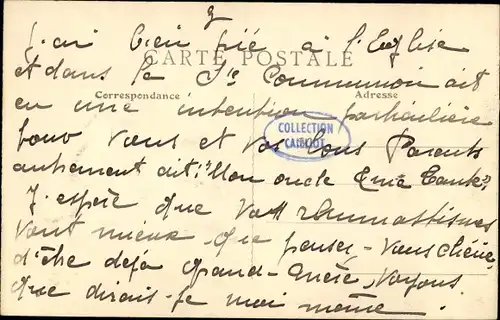 2
J'ai bien prié à l'Eglise
CARTE POSTALE
et dans la Ste Communion ait
Correspondance
Adresse
eu une intention particulière
COLLECTION
pour vous et vos bons Parents
autrement dit: "Mon oncle & ma tante"
J'espère que vos rhumatismes
vont mieux. que pensez-vous chérie,
d'être déjà grand-mère, voyons
que dirais-je moi même.